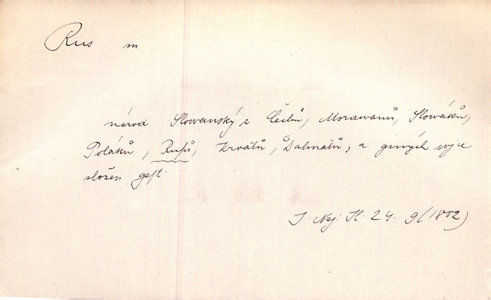 Rus m
národ Slowanský z Čechů, Morawanů, Slowáků,
Poláků, Rusů, Kroátů, Dalmatů, a giných wjce
složen gest.
J. Nej. Sl. 24. 9 (1802)